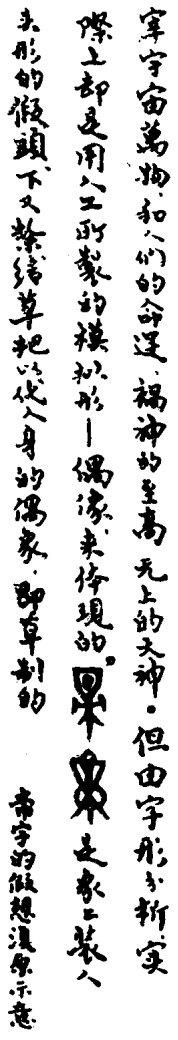 宰宇宙萬物、和人们的命运、祸神的至高无上的天神。但由字形分析,实
際上却是用人工所製的模拟形—偶像、来体现的。是象上装人
头形的假頭、下又繫结草把以代人身的偶象,即草制的
帝字的假想復原示意